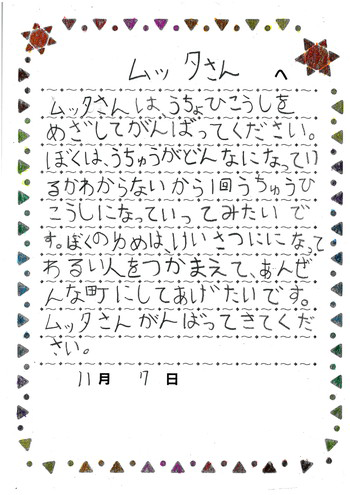 ムッタさん へ
ムッタさんは、うちょひこうしを
めざしてがんばってください。
ぼくは、うちゅうがどんなになってい
るかわからないから1回うちゅうひ
こうしになっていってみたいで
す。ぼくのゆめは、けいさつにになって
わるい人をつかまえて、あんぜ
んな町にしてあげたいです。
ムッタさんがんばってきてくだ
さい。
11月 17日